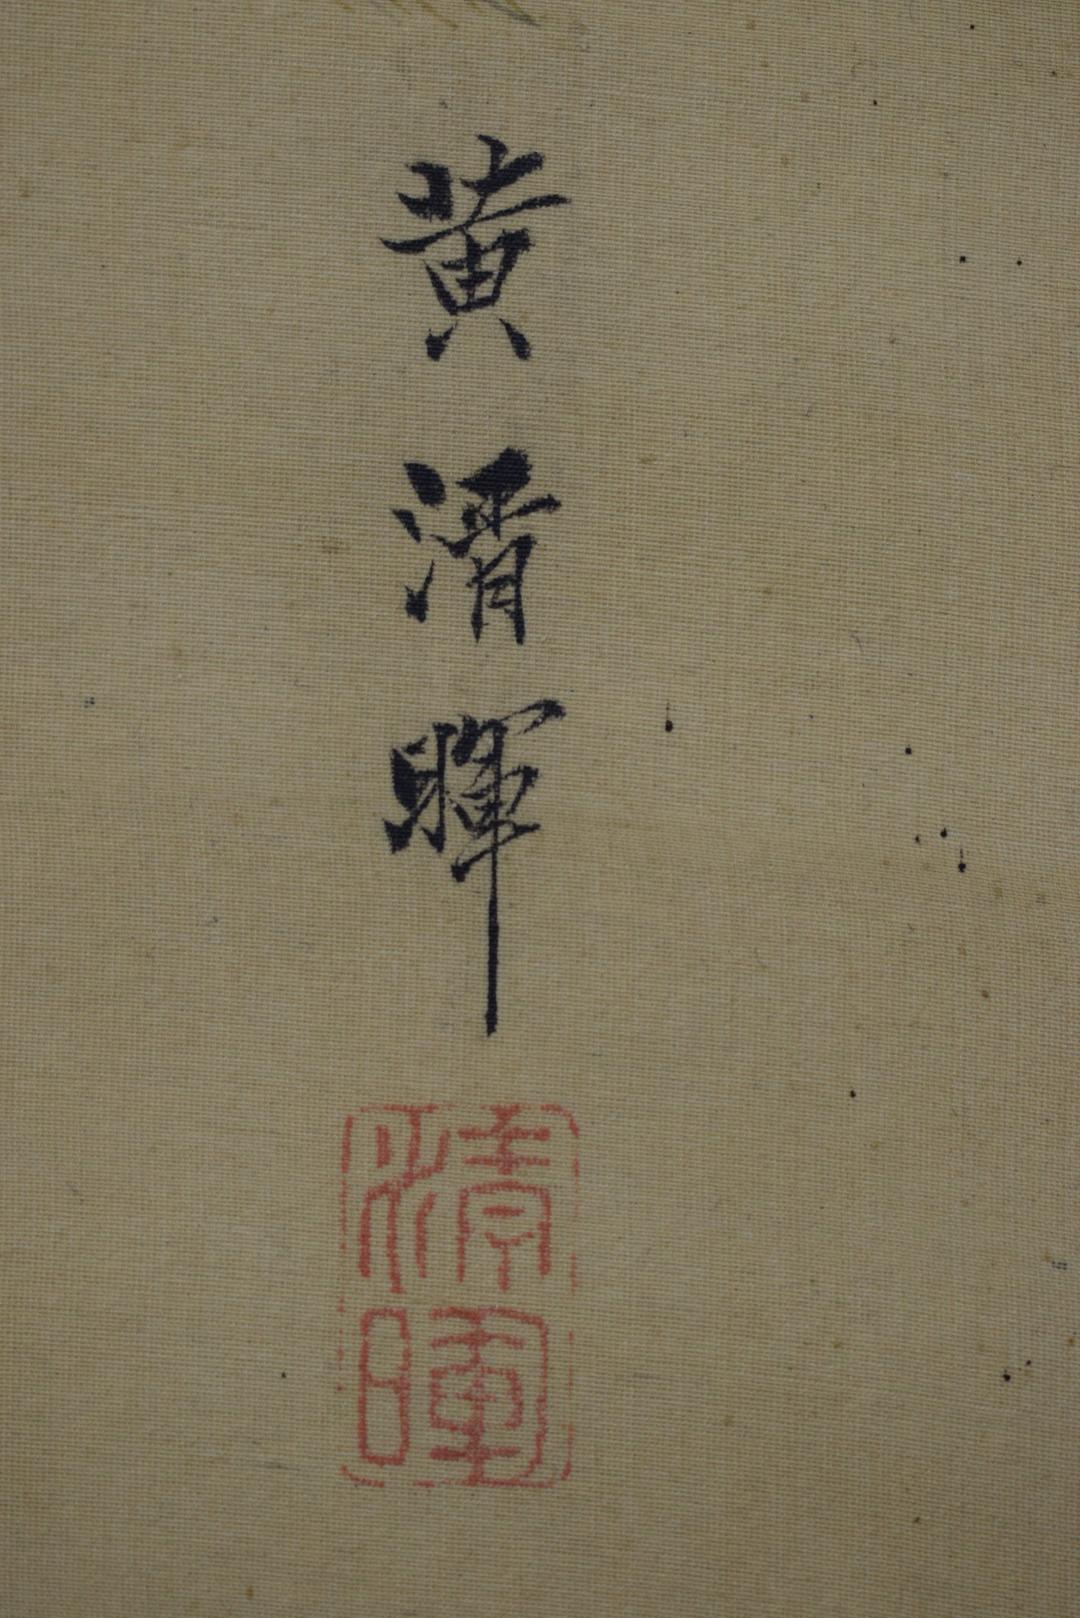 黄清暉
清暉